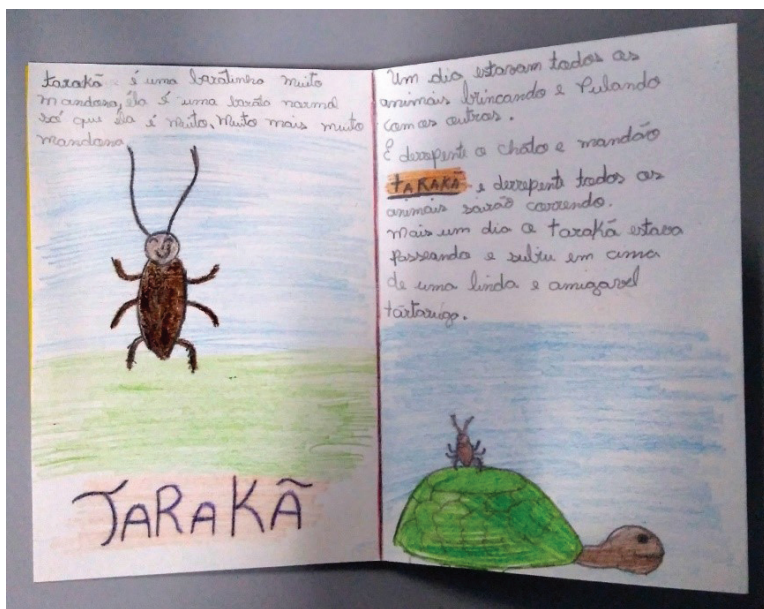 tarakã - é uma baratinha muito
mandona, ela é uma barata normal
só que ela é muito, muito mais muito
mandona
TARAKÃ
Um dia estavam todos os
animais brincando e Pulando
com os outros.
E derrepente o chato e mandão
TARAKÃ e derrepente todos os
animais sairão correndo.
Mais um dia o tarakã estava
passeando e subiu em cima
de uma linda e amigavel
tartaruga.